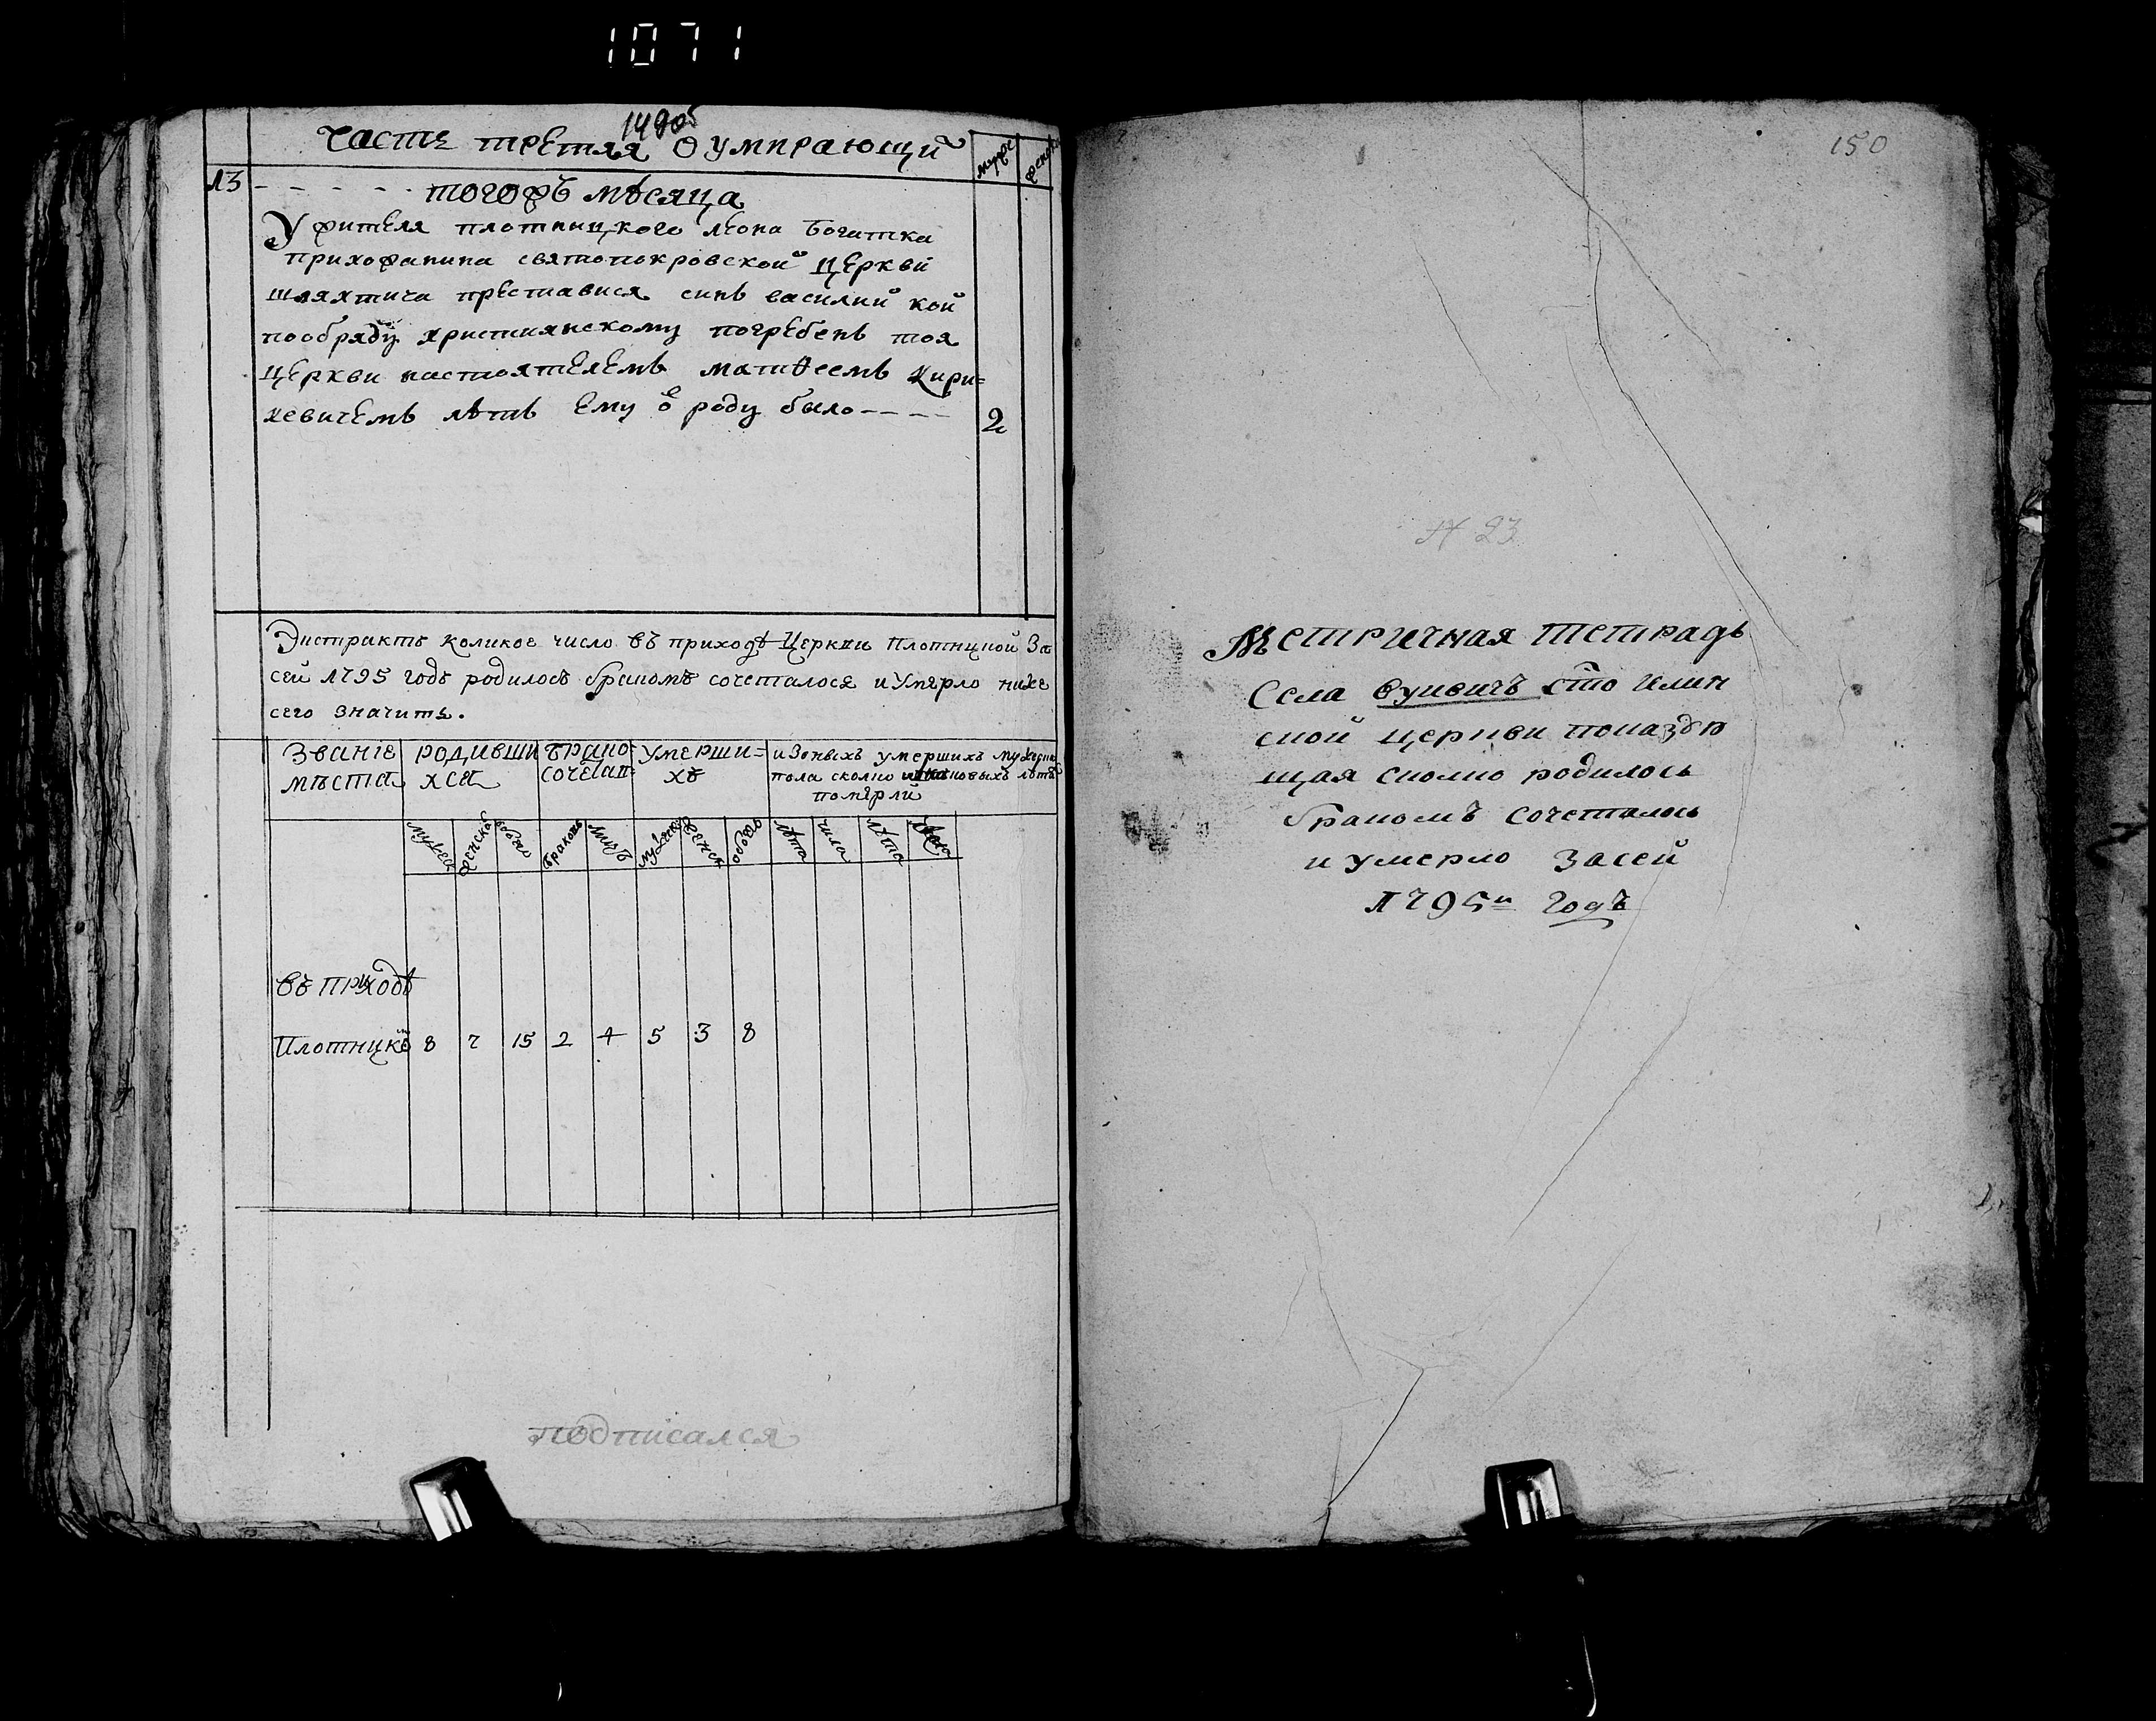 1071
149об
Часть третяя О умирающи
мужес женска
13 - - - - - тогожъ мѣсяца
У жителя плотницкого леона Богатка
прихожанина святопокровской церкви
шляхтича преставися синъ василий кой
пообряду християнскому погребенъ тоя
церкви настоятелемъ матѳеемъ Кири=
хевичемъ лѣтъ ему ѿ роду было - - - - 2
Экстрактъ коликое число въ приходѣ Церкви Плотницкой За
сей 1795 годъ родилось бракомъ сочеталося и умерло ниже
сего значитъ.
Звание родивши брако= умерши= изоныхъ умершихъ мужеска
мѣста хся сочетан хъ пола сколко лѣтъ
померли
мужеск женска обоего браковъ лицъ мужеск женск обоего лѣта числа лѣта
въ приходѣ
Плотницко 8 7 15 2 4 5 3 8
подписался
150
№ 23
Метричная тетрадь
Села Вуивичъ сто Илин
ской церкви показую
щая сколко родилось
бракомъ сочеталось
и умерло Засей
1795й Годъ